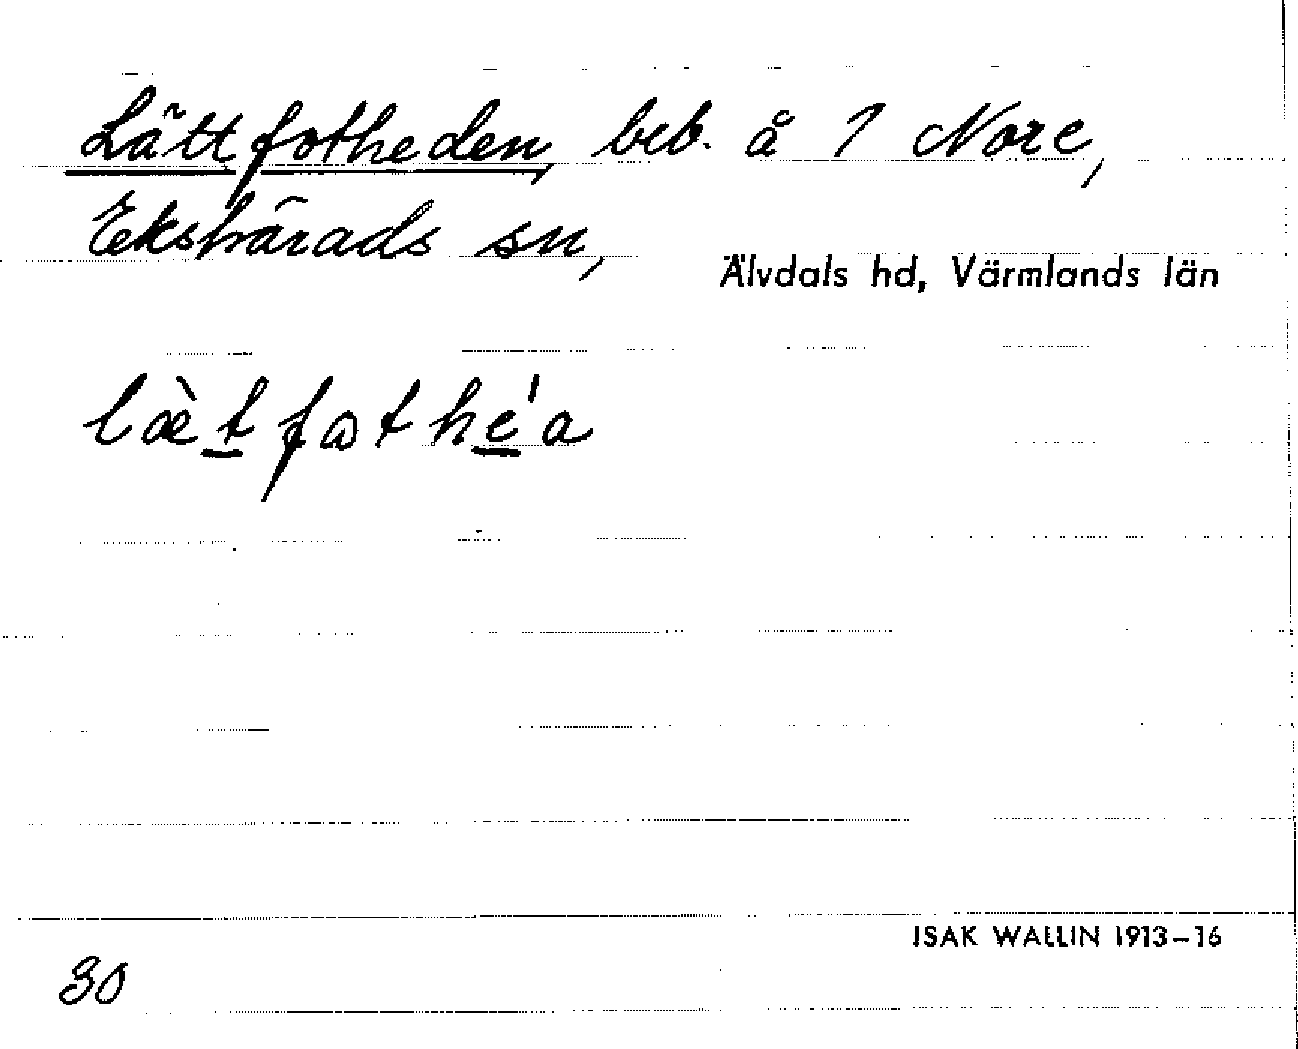 Lättfotheden, beb. å 1 Nore,
Ekshärads sn,
Älvdals hd, Värmlands län
læ̀t̲fɷthe̲'a
ISAK WALLIN 1913–16
30